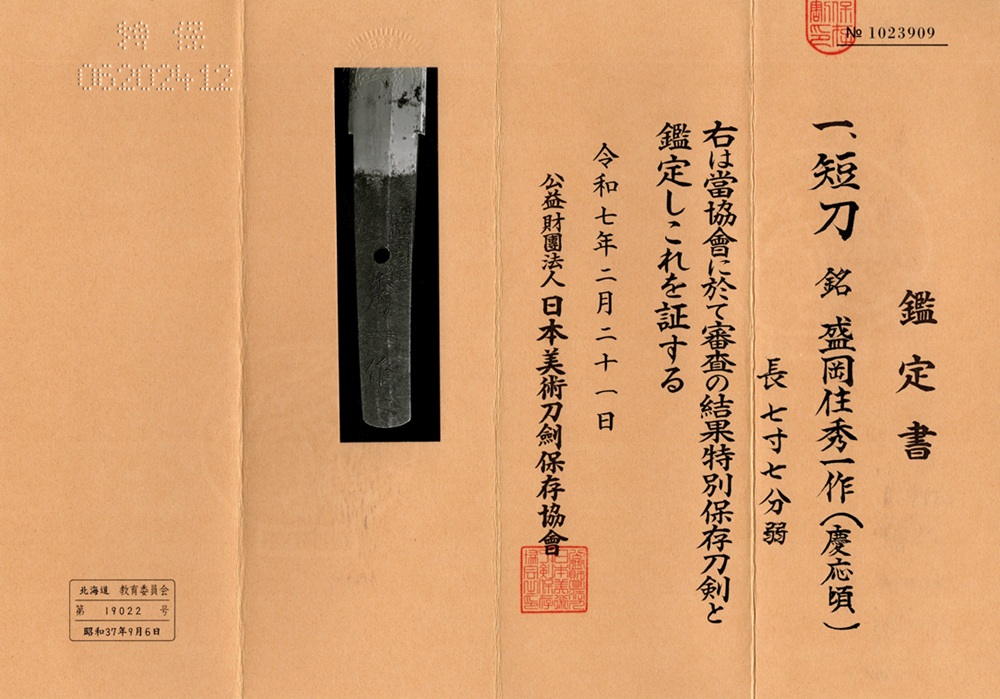 № 1023909
鑑定書
一、短刀 銘 盛岡住秀一作(慶応頃)
長七寸七分弱
右は當協會に於て審査の結果特別保存刀剣と
鑑定しこれを証する
令和七年二月二十一日
公益財團法人 日本美術刀劍保存協會
特保
06202412
北海道 教育委員会
第 19022 号
昭和37年9月6日